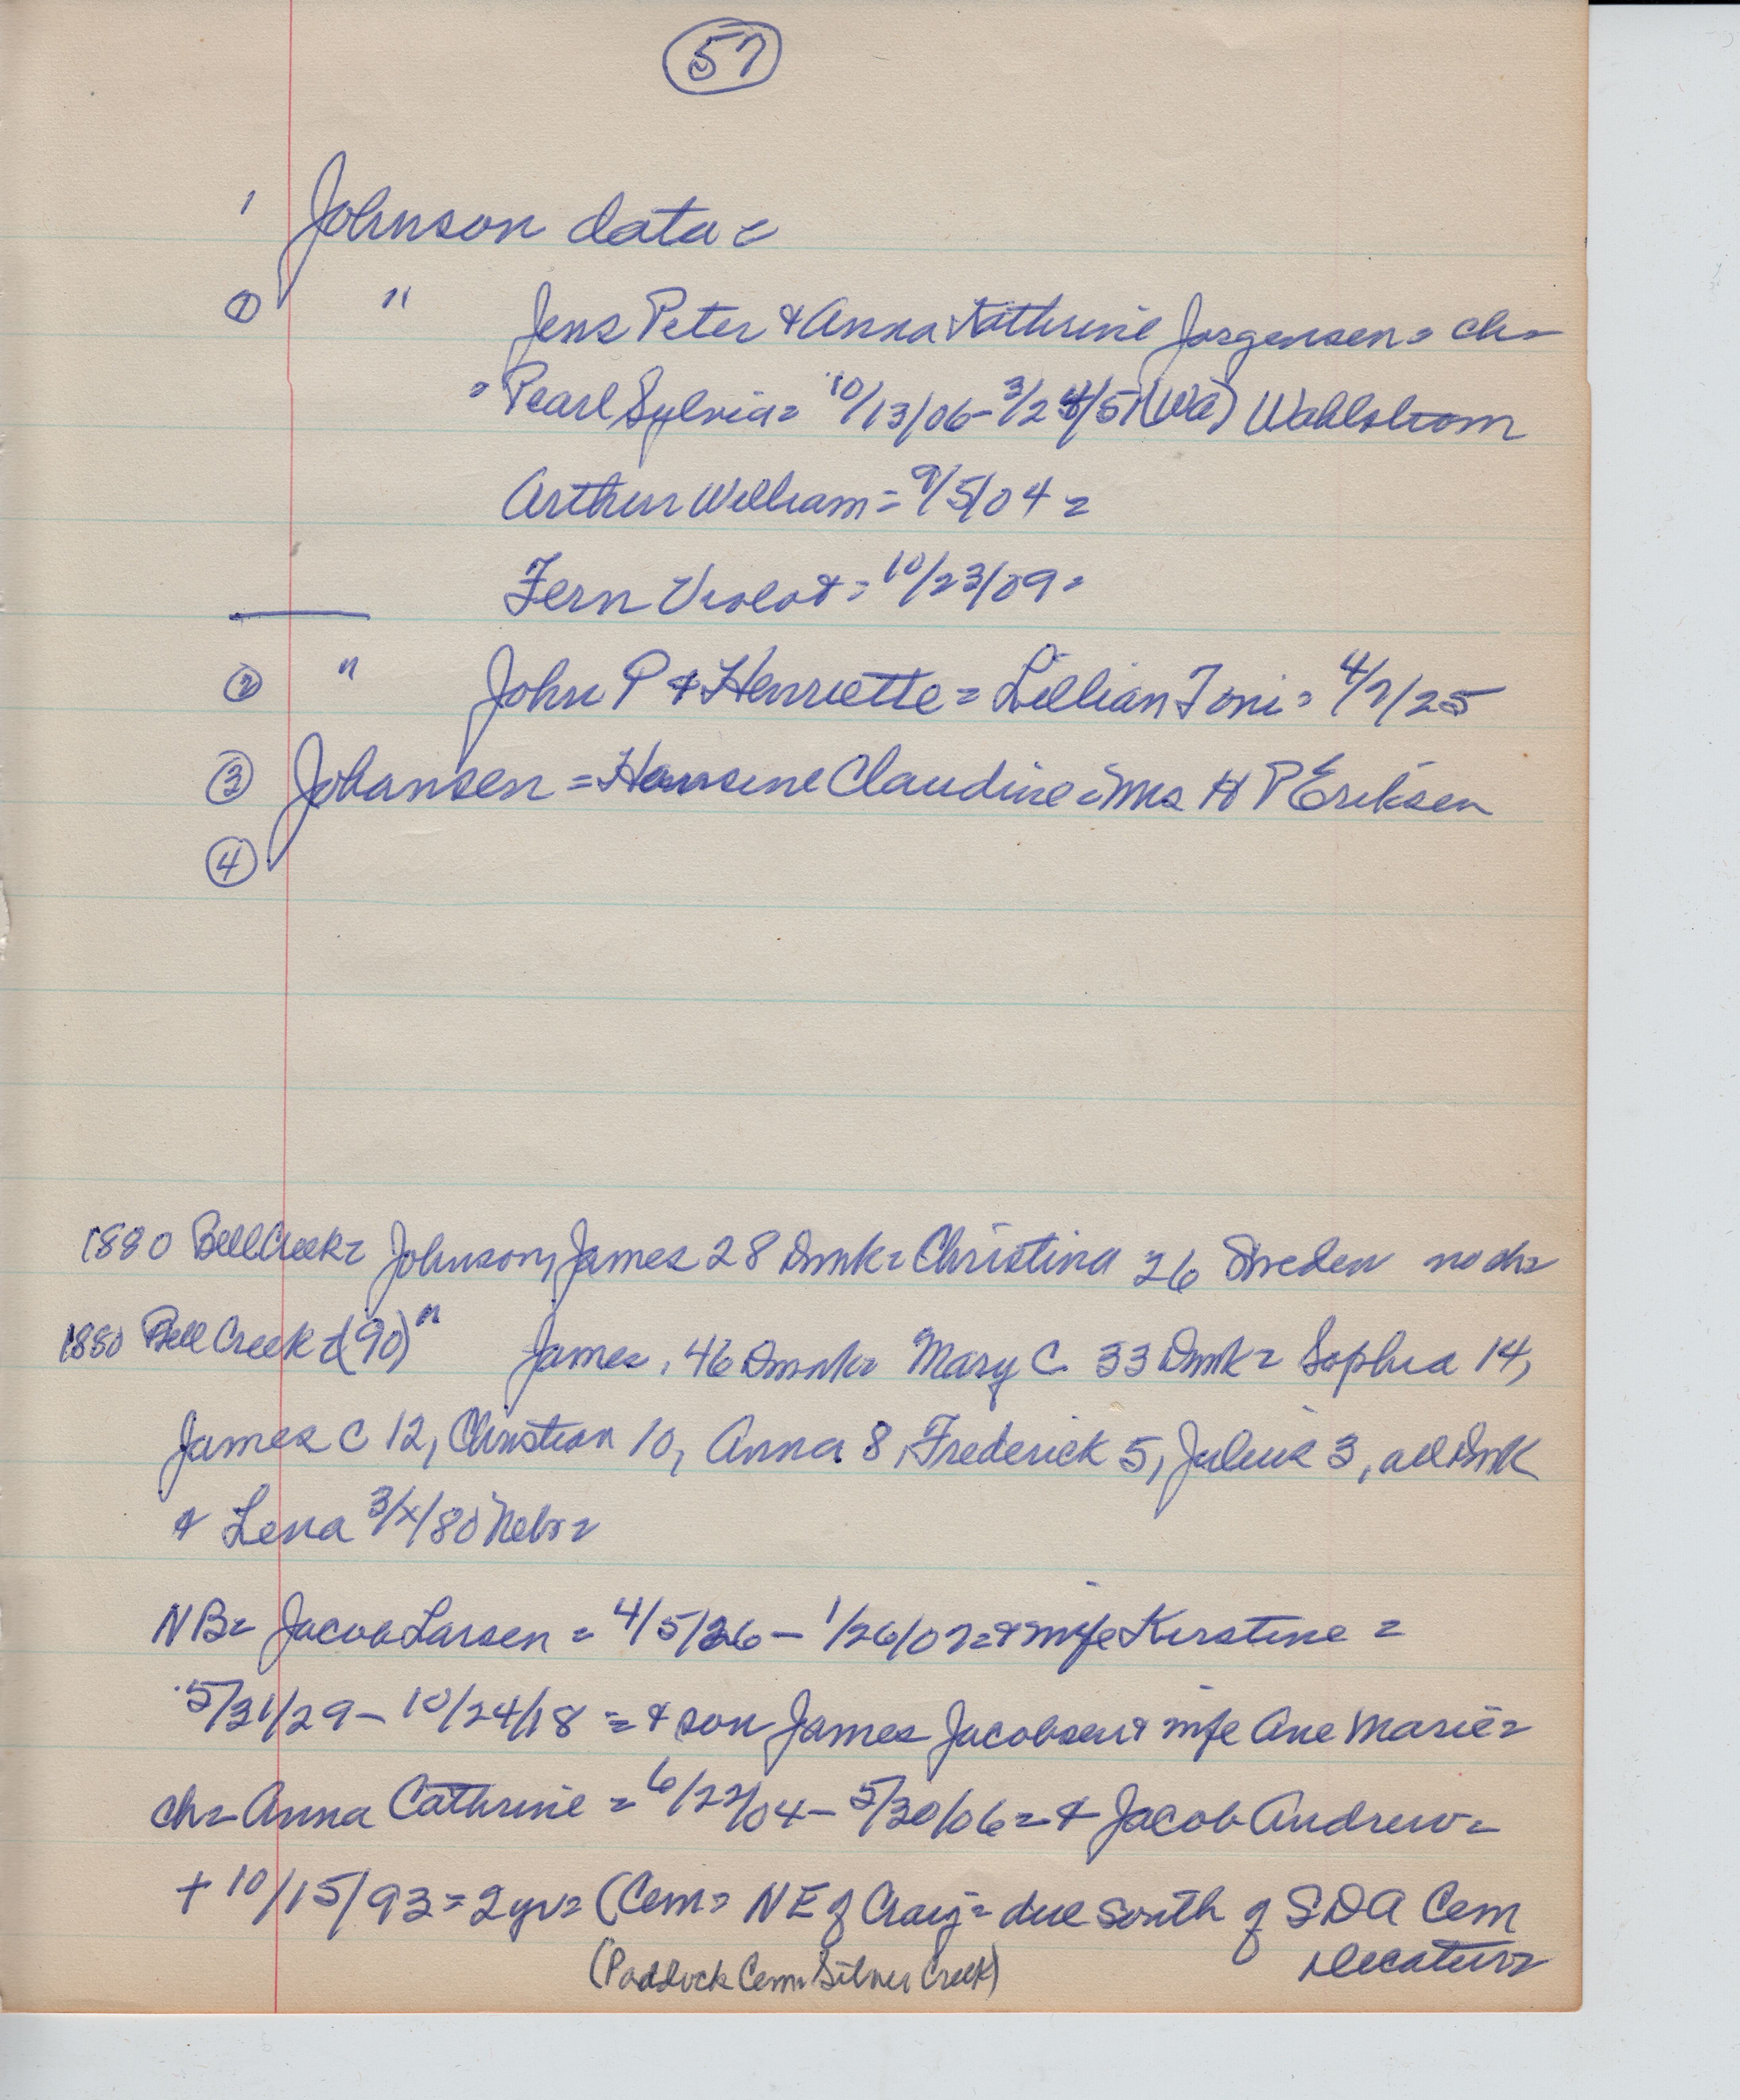 57
1 Johnson data =
① " Jens Peter & Anna Kathrine Jorgensen = ch =
= Pearl Sylvia = 10/13/06 - 3/2 /57 (Wa) Wahlstrom
Arthur William = 9/5/04 =
Fern Violet = 10/23/09 =
② " John P & Henriette = Lillian Toni = 4/7/25
③ Johansen = Hansine Claudine = Mrs H P Eriksen
④
1880 Bell Creek = Johnson, James 28 Dmk = Christina 26 Sweden no ch =
1880 Bell Creek (90) " James, 46 Dmnk = Mary C. 33 Dmk = Sophia 14,
James C 12, Christian 10, Anna 8, Frederick 5, Julius 3, all Dmk
& Lena 3/x/80 Nebr =
NB = Jacob Larsen = 4/5/26 - 1/26/07 = & wife Kirstine =
5/31/29 - 10/24/18 = & son James Jacobsen & wife Ane Marie =
ch = Anna Cathrine = 6/22/04 - 5/30/06 = & Jacob Andrew =
+ 10/15/93 = 2 yr = (Cem = NE of Craig = due south of SDA Cem
Decatur =
(Paddock Cem = Silver Creek)